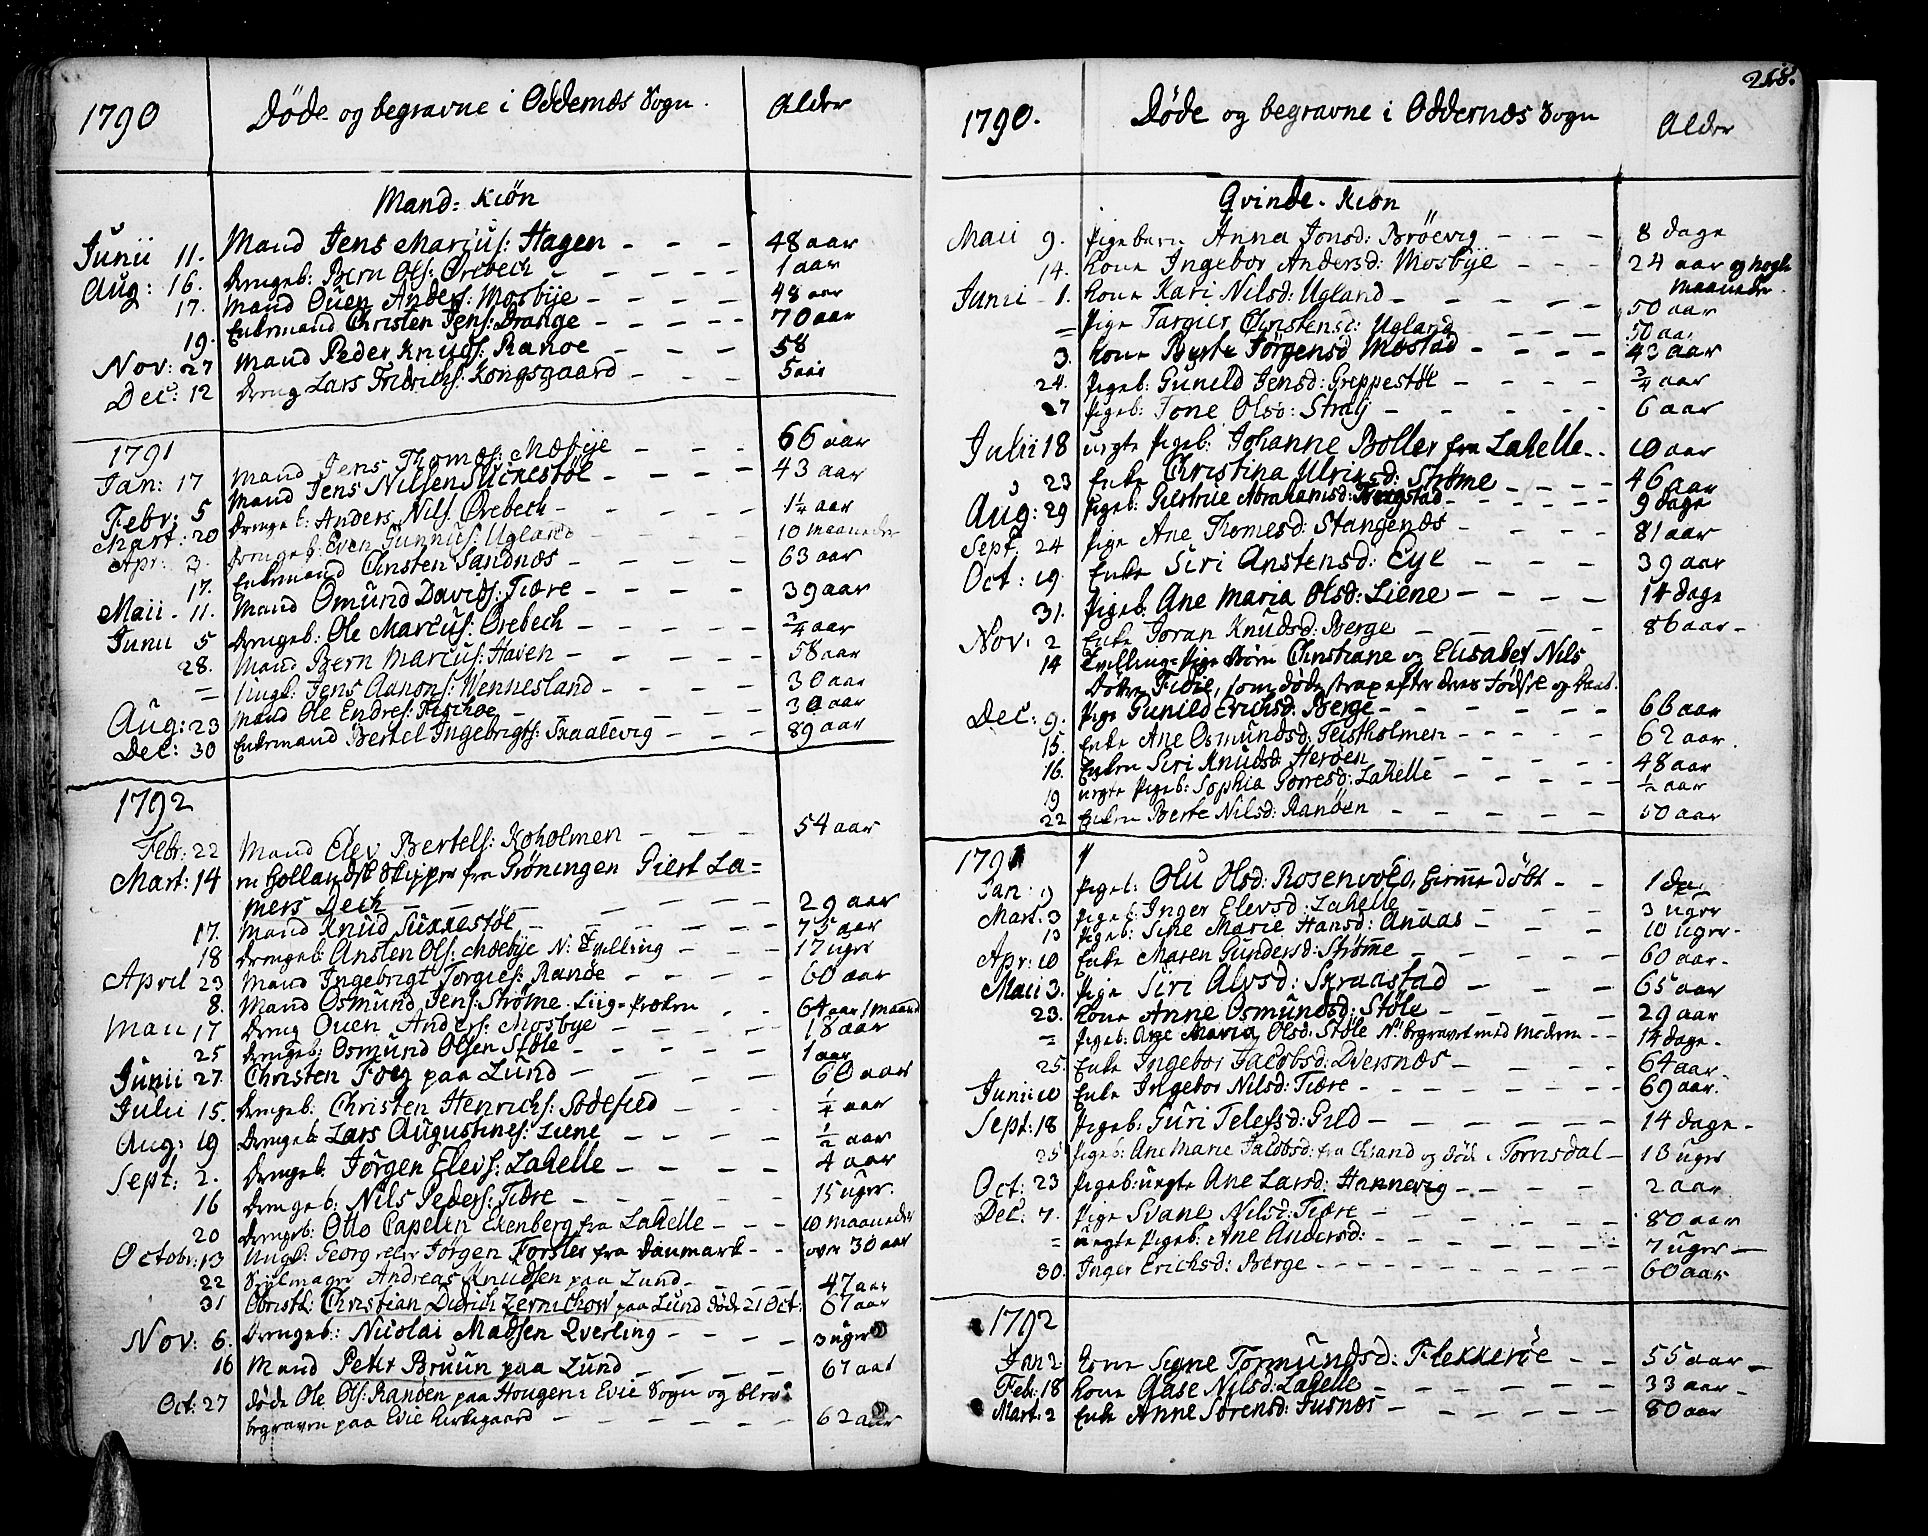 1790
Døde og begravne i Oddernæs Sogn.
Alder
Mand=Kiøn
Junii 11. Mand Jens Marcus: Hagen - - - 48 aar
Aug: 16. Drengeb: Bern Ols: Ørebech - - - 1 aar
17. Mand Ouen Anders: Mosbÿe - - - 48 aar
19. Enkemand Christen Jens: Drange - - - 70 aar
Nov: 27 Mand Peder Knuds: Ranøe - - - 58
Dec: 12 Dreng Lars Fridrichs: Kongsgaard - - - 5 aar
1791
Jan: 17 Mand Jens Thomæs: Mæsbÿe - - - 66 aar
Febr: 5 Mand Jens Nilsen Suckestøl - - - 43 aar
Mart: 20 Drengeb: Anders Nils: Ørebech - - - 1¼ aar
Apr: 3. Drengeb: Even Gunnus: Ugland - - - 10 maaneder
17. Enkemand Christen Sandnæs - - - 63 aar
Maii - 11. Mand Omund Davids: Tiære - - - 39 aar
Junii 5 Drengeb: Ole Marcus: Ørebech - - - ¾ aar
28. Mand Bern Marcus: Haven - - - 58 aar
= Ungk: Jens Aanons: Vennesland - - - 30 aar
Aug: 23 Mand Ole Endres: - - - 30 aar
Dec: 30 Enkemand Bertel Ingebrigts: Skaalevig - - - 89 aar
1792
Febr: 22 Mand Elev Bertels: Koholmen - - - 54 aar
Mart: 14 en Hollandsk Skipper fra Grøningen Piert La=
mers Dech - - - 29 aar
17. Mand Knud Suxxestøl - - - 75 aar
18 Drengeb: Ansten Ols: Moebÿe N: Tvilling - - - 17 uger
April 23 Mand Ingebrigt Torgies: Rande - - - 60 aar
8. Mand Osmund Jens: Strøme Liig=Præken - - 64 aar 1 maaned
Maii 17 Dreng Ouen Anders: Mosbye - - - 18 aar
25 Drengeb: Osmund Olsen Støle - - - 1 aar
Junii 27. Christen Foeg paa Lund - - - 60 aar
Julii 15. Drengeb: Christen Henrichs: Sødefied - - - ¼ aar
Aug: 19 Drengeb: Lars Augustines: Liene - - - ½ aar
Sept: 2. Drengeb: Jørgen Elevs: Lahelle - - - 4 aar
16 Drengeb: Nils Peders: Tiære - - - 15 uger.
20 Drengeb: Otto Capelen Ekenberg fra Lahelle - - - 10 maaneder
Octobr: 13 Ungk: Georg eller Jørgen Forster fra Danmark - - over 30 aar
22 Seylmager Andreas Knudsen paa Lund - - - 47 aar
31 Obristl: Christian Didrich Zernichow paa Lund døde 21 Oct: 67 aar
Nov: 6. Drengeb: Nicolai Madsen Qverling - - - 3 uger
16 Mand Peter Bruun paa Lund - - - 67 aar
Oct: 27 døde Ole Ols: Ranøen paa Hougen i Evie Sogn og blev
begraven paa Evie Kirkegaard - - - 62 aar
218.
1790.
Døde og begravne i Oddernæs Sogn
Alder
Qvinde-Kiøn
Maii 9. Pigebarn Anna Jonsd: Brøevig - - - 8 dage
14. Kone Ingebor Andersd: Mosbÿe - - - 24 aar og nogle
maaneder
Junii - 1. Kone Kari Nilsd: Ugland - - - 50 aar
= Pige Targier Christensd: Ugland - - - 50 aar
3. Kone Berte Jørgensd Mostad - - - 43 aar
24. Pigeb: Gunild Jensd: Greppestøl - - - ¾ aar
27 Pigeb: Tone Olsd: Straÿ - - - 6 aar
Julii 18 uegte Pigeb: Johanne Boller fra Lahelle - - 10 aar
23 Enke Christina Ulrixsd: Strøme - - - 46 aar
Aug: 29 Pigeb: Giertrue Abrahamsd: - - - 9 dage
Sept. 24 Pige Ane Thomesd: Stangenæs - - - 81 aar
Oct: 19. Enke Siri Anstensd: Eÿe - - - 39 aar
31. Pigeb: Ane Maria Olsd: Liene - - - 14 dage
Nov: 2 Enke Joran Knudsd: Berge - - - 86 aar -
14 Tvilling=Pige Børn Christiane og Elisabet Nils
Døtre Tiære, som døde strax efter deres Fødsel og Daab.
Dec: 9. Pige Gunild Erichsd: Berge - - - 66 aar
15. Enke Ane Osmundsd: Teistholmen - - - 62 aar.
16. Enken Siri Knudsd Herøen - - - 48 aar
19 uegte Pigeb: Sophia Torresd: Lahelle - - - ½ aar
22 Enken Berte Nilsd: Ranøen - - - 50 aar
1791
Jan: 9 Pigeb: Olu Olsd: Rosenvold, hiemme døbt - - 1 dag
Mart: 3 Pigeb: Inger Elevsd: Lahelle - - - 3 uger
13 Pigeb: Sine Marie Hansd: Anaas - - - 10 uger -
Apr: 10 Enke Maren Gundersd: Strøme - - - 60 aar -
Maii 3. Pige Siri Alvsd: Straastad - - - 65 aar
23. Kone Anne Osmundsd: Støle - - - 29 aar
= Pigeb: Ane Maria Olsd: Støle N: begravet med Moderen - - 14 dage -
25. Enke Ingebor Jacobsd: Qversnæs - - - 64 aar -
Junii 10 Enke Ingebor Nilsd: Tiære - - - 69 aar.
Sept: 18 Pigeb: Guri Telefsd: Gild - - - 14 dage -
25 Pigeb: Ane Marie Jacobsd: fra Chsand og døde i Torrisdal - 13 uger
Oct: 23 Pigeb: uegte Ane Larsd: Hannevig - - - 2 aar
Dec: 7. Pige Svane Nilsd: Tiære - - - 80 aar
= uegte Pigeb: Ane Andersd: - - - 7 uger -
30. Inger Erichsd: Berge - - - 60 aar
1792
Jan 2 Kone Signe Tormundsd: Flekkerøe - - 55 aar -
Feb: 18 Kone Aase Nilsd: Lahelle - - - 33 aar -
Mart: 2 Enke Anne Sørensd: Justnæs - - - 80 aar